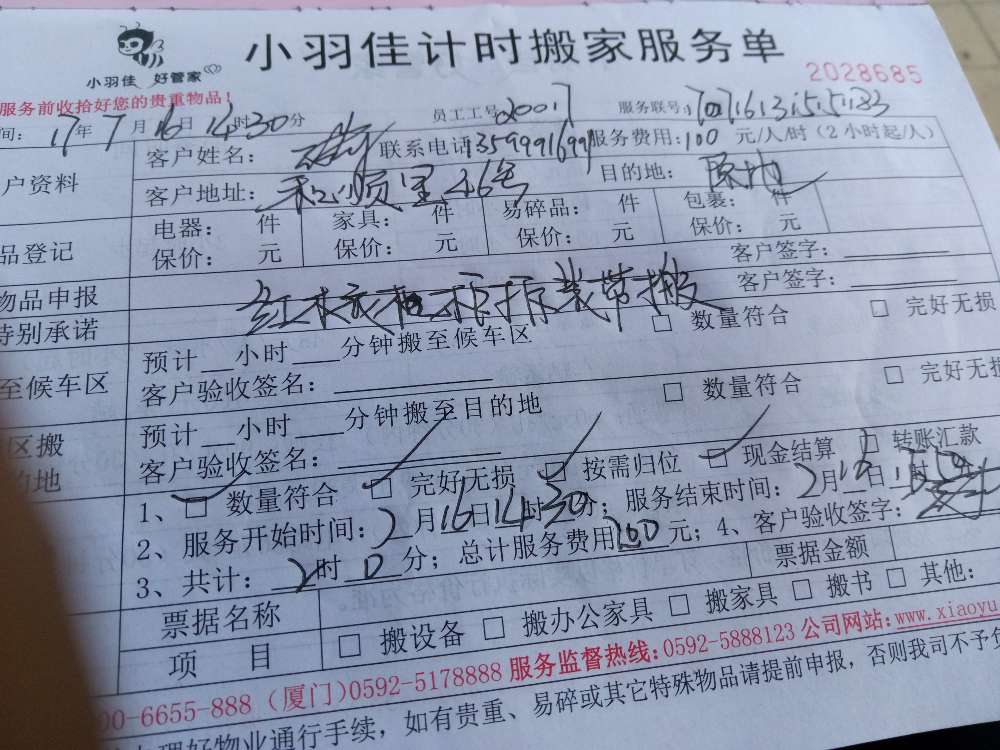 小羽佳 好管家
小羽佳计时搬家服务单
2028685
服务前收拾好您的贵重物品！
间：17年7月16日14时30分 员工工号 20017 服务联号：
户资料 客户姓名： 联系电话 服务费用：100 元/人/时（2小时起/人）
客户地址：和顺里46号 目的地：原地
品登记 电器： 件 家具： 件 易碎品： 件 包裹： 件
保价： 元 保价： 元 保价： 元 保价： 元
客户签字：
物品申报 客户签字：
特别承诺 红木衣柜 拆装带搬
至候车区 预计__小时___分钟搬至候车区 □ 数量符合 □ 完好无损
客户验收签名：
区搬 预计__小时___分钟搬至目的地 □ 数量符合 □ 完好无损
的地 客户验收签名：
1、□ 数量符合 □ 完好无损 □ 按需归位 □ 现金结算 □ 转账汇款
2、服务开始时间：2月16日14时30分；服务结束时间：2月16日
3、共计：2时0分；总计服务费用200元；4、客户验收签字：
票据名称 票据金额
项 目 □ 搬设备 □ 搬办公家具 □ 搬家具 □ 搬书 □ 其他：
00-6655-888（厦门）0592-5178888 服务监督热线：0592-5888123 公司网站：www.xiaoyu
办理好物业通行手续，如有贵重、易碎或其它特殊物品请提前申报，否则我司不予